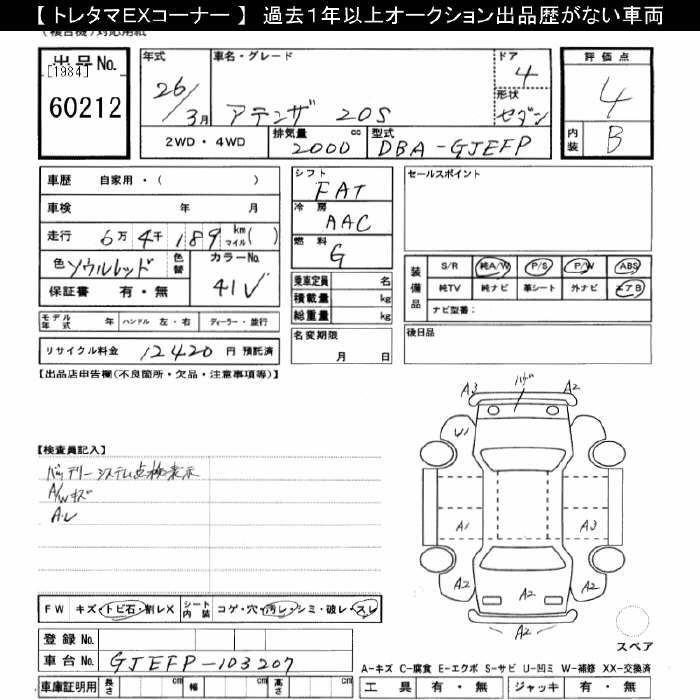 【 トレタマEXコーナー 】 過去１年以上オークション出品歴がない車両
出品No.
[1984]
60212
年式
26/3月
車名・グレード
アテンザ 20S
ドア
4
形状
セダン
評価点
4
内装 B
2WD・4WD
排気量 cc
2000
型式
DBA-GJEFP
車歴 自家用・( )
車検 年 月
走行 6万 4千 189 km マイル( )
色 ソウルレッド
色替
カラーNo.
41V
保証書 有・無
モデル年式 年 ハンドル 左・右 ディーラー・並行
リサイクル料金 12420 円 預託済
シフト
FAT
冷房
AAC
燃料
G
乗車定員 名
積載量 kg
総重量 kg
名変期限
月 日
セールスポイント
装備品
S/R 純A/W P/S P/W ABS
純TV 純ナビ 革シート 外ナビ エアB
ナビ型番:
後日品
【出品店申告欄(不良箇所・欠品・注意事項等)】
【検査員記入】
バッテリーシステム点検表示
A/Wキズ
A.U
A3
A2
U1
A1
A3
A2
A2
A2
A2
スペア
FW キズ・トビ石・割レX
シート内装 コゲ・穴・汚レ・シミ・破レ・スレ
登録No.
車台No. GJEFP-103207
車庫証明用 長さ cm 幅 cm 高さ cm
A-キズ C-腐食 E-エクボ S-サビ U-凹ミ W-補修 XX-交換済
工具 有・無 ジャッキ 有・無